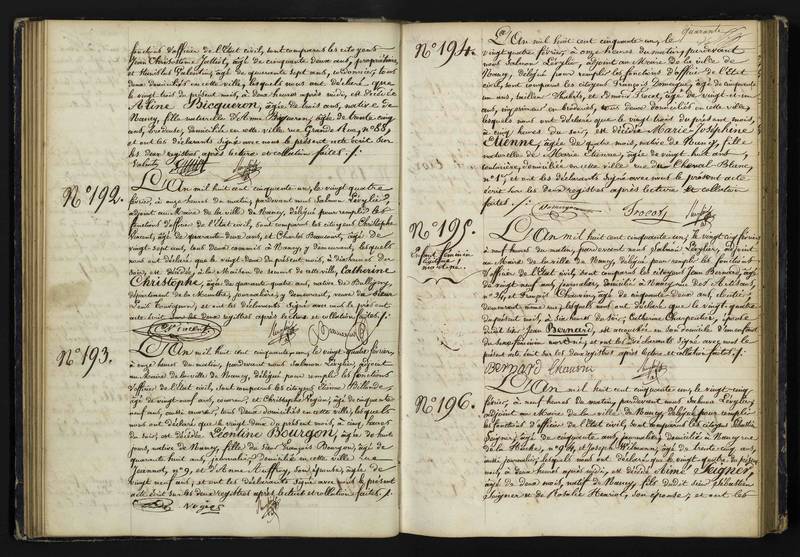 fonctions d'officier de l'Etat civil, sont comparus les citoyens
Jean Christostôme Jolliot, âgé de cinquante deux ans, propriétaire,
et Stanislas Valentin, âgé de quarante sept ans, cordonnier, tous
deux domiciliés en cette ville, lesquels nous ont déclaré que
le vingt trois du présent mois, à deux heures après midi, est décédée
Aline Bicqueron, âgée de trois ans, native de
Nancy, fille naturelle d'Anne Bicqueron, âgée de trente cinq
ans, brodeuse, domiciliée en cette ville rue Grande Rue, n° 85,
et ont les déclarants signé avec nous le présent acte écrit sur
les deux registres après lecture et collation faites ./.
Valentin
N° 192.
L'An mil huit cent cinquante un, le vingt quatre
février, à onze heures du matin, pardevant nous Salmon Lévylier,
adjoint au Maire de la ville de Nancy, délégué pour remplir les
fonctions d'officier de l'Etat civil, sont comparus les citoyens Christophe
Vincent, âgé de quarante deux ans, et Charles Beaucourt, âgé de
vingt sept ans, tous deux commis à Nancy, y demeurant, lesquels
nous ont déclaré que le vingt deux du présent mois, à dix heures du
soir, est décédée, à la Maison de secours de cette ville, Catherine
Christophe, âgée de quarante quatre ans, native de Bulligny,
département de la Meurthe, journalière, y demeurant, veuve de
et ont les déclarants signé avec nous le présent
acte écrit sur les deux registres après lecture et collation faites ./.
C. Vincent
N° 193.
L'An mil huit cent cinquante un, le vingt quatre février,
à onze heures du matin, pardevant nous Salmon Lévylier, adjoint
au Maire de la ville de Nancy, délégué pour remplir les fonctions
d'officier de l'Etat civil, sont comparus les citoyens Etienne
âgé de vingt neuf ans, et Christophe Vogin, âgé de cinquante
neuf ans, tous deux domiciliés en cette ville, lesquels
nous ont déclaré que le vingt deux du présent mois, à cinq heures
du soir, est décédée Léontine Bourgon, âgée de huit
jours, native de Nancy, fille de Sieur François Bourgon, âgé de
quarante huit ans, journalier, domicilié en cette ville rue
Jeannot, n° 9, et d'Anne Auffroy, son épouse, âgée de
vingt neuf ans, et ont les déclarants signé avec nous le présent
acte écrit sur les deux registres après lecture et collation faites ./.
Quarante
N° 194.
L'An mil huit cent cinquante un, le
vingt quatre février, à onze heures du matin, pardevant
nous Salmon Lévylier, adjoint au Maire de la ville de
Nancy, délégué pour remplir les fonctions d'officier de l'Etat
civil, sont comparus les citoyens François âgé de cinquante
un ans, tailleur d'habits, et Bernard Trocot, âgé de vingt et un
ans, imprimeur en broderies, tous deux domiciliés en cette ville,
lesquels nous ont déclaré que le vingt trois du présent mois,
à cinq heures du soir, est décédée Marie Joséphine
Etienne, âgée de quatre mois, native de Nancy, fille
naturelle de Marie Etienne, âgée de vingt huit ans,
couturière, domiciliée en cette ville rue du Cheval Blanc,
n° 1er, et ont les déclarants signé avec nous le présent acte
écrit sur les deux registres après lecture et collation
faites ./.
Trocot
N° 195.
Enfant féminin
légitime
mort-né.
L'An mil huit cent cinquante un, le vingt cinq février
à neuf heures du matin, pardevant nous Salmon Lévylier, adjoint
au Maire de la ville de Nancy, délégué pour remplir les fonctions
d'officier de l'Etat civil, sont comparus les citoyens Jean Bernard, âgé
de vingt neuf ans, journalier, domicilié à Nancy rue des Artisans,
n° 34, et François Chauvin, âgé de cinquante deux ans,
demeurant même rue, lesquels nous ont déclaré que le vingt quatre
du présent mois, à six heures du soir, Catherine Charpentier, épouse
dudit sieur Jean Bernard, est accouchée en son domicile d'un enfant
du sexe féminin mort-né; et ont les déclarants signé avec nous le
présent acte écrit sur les deux registres après lecture et collation faites ./.
Bernard Chauvin
N° 196.
L'An mil huit cent cinquante un, le vingt cinq
février, à neuf heures du matin, pardevant nous Salmon Lévylier,
adjoint au Maire de la ville de Nancy, délégué pour remplir
les fonctions d'officier de l'Etat civil, sont comparus les citoyens Sébastien
Seigner, âgé de cinquante ans, journalier, domicilié à Nancy rue
de la Hache, n° 94, et Joseph âgé de trente cinq ans,
lesquels nous ont déclaré que le vingt quatre du présent
mois, à deux heures après midi, est décédé Aimé Seigner,
âgé de deux mois, natif de Nancy, fils dudit sieur Sébastien
Seigner et de Rosalie Henriot, son épouse; et ont les